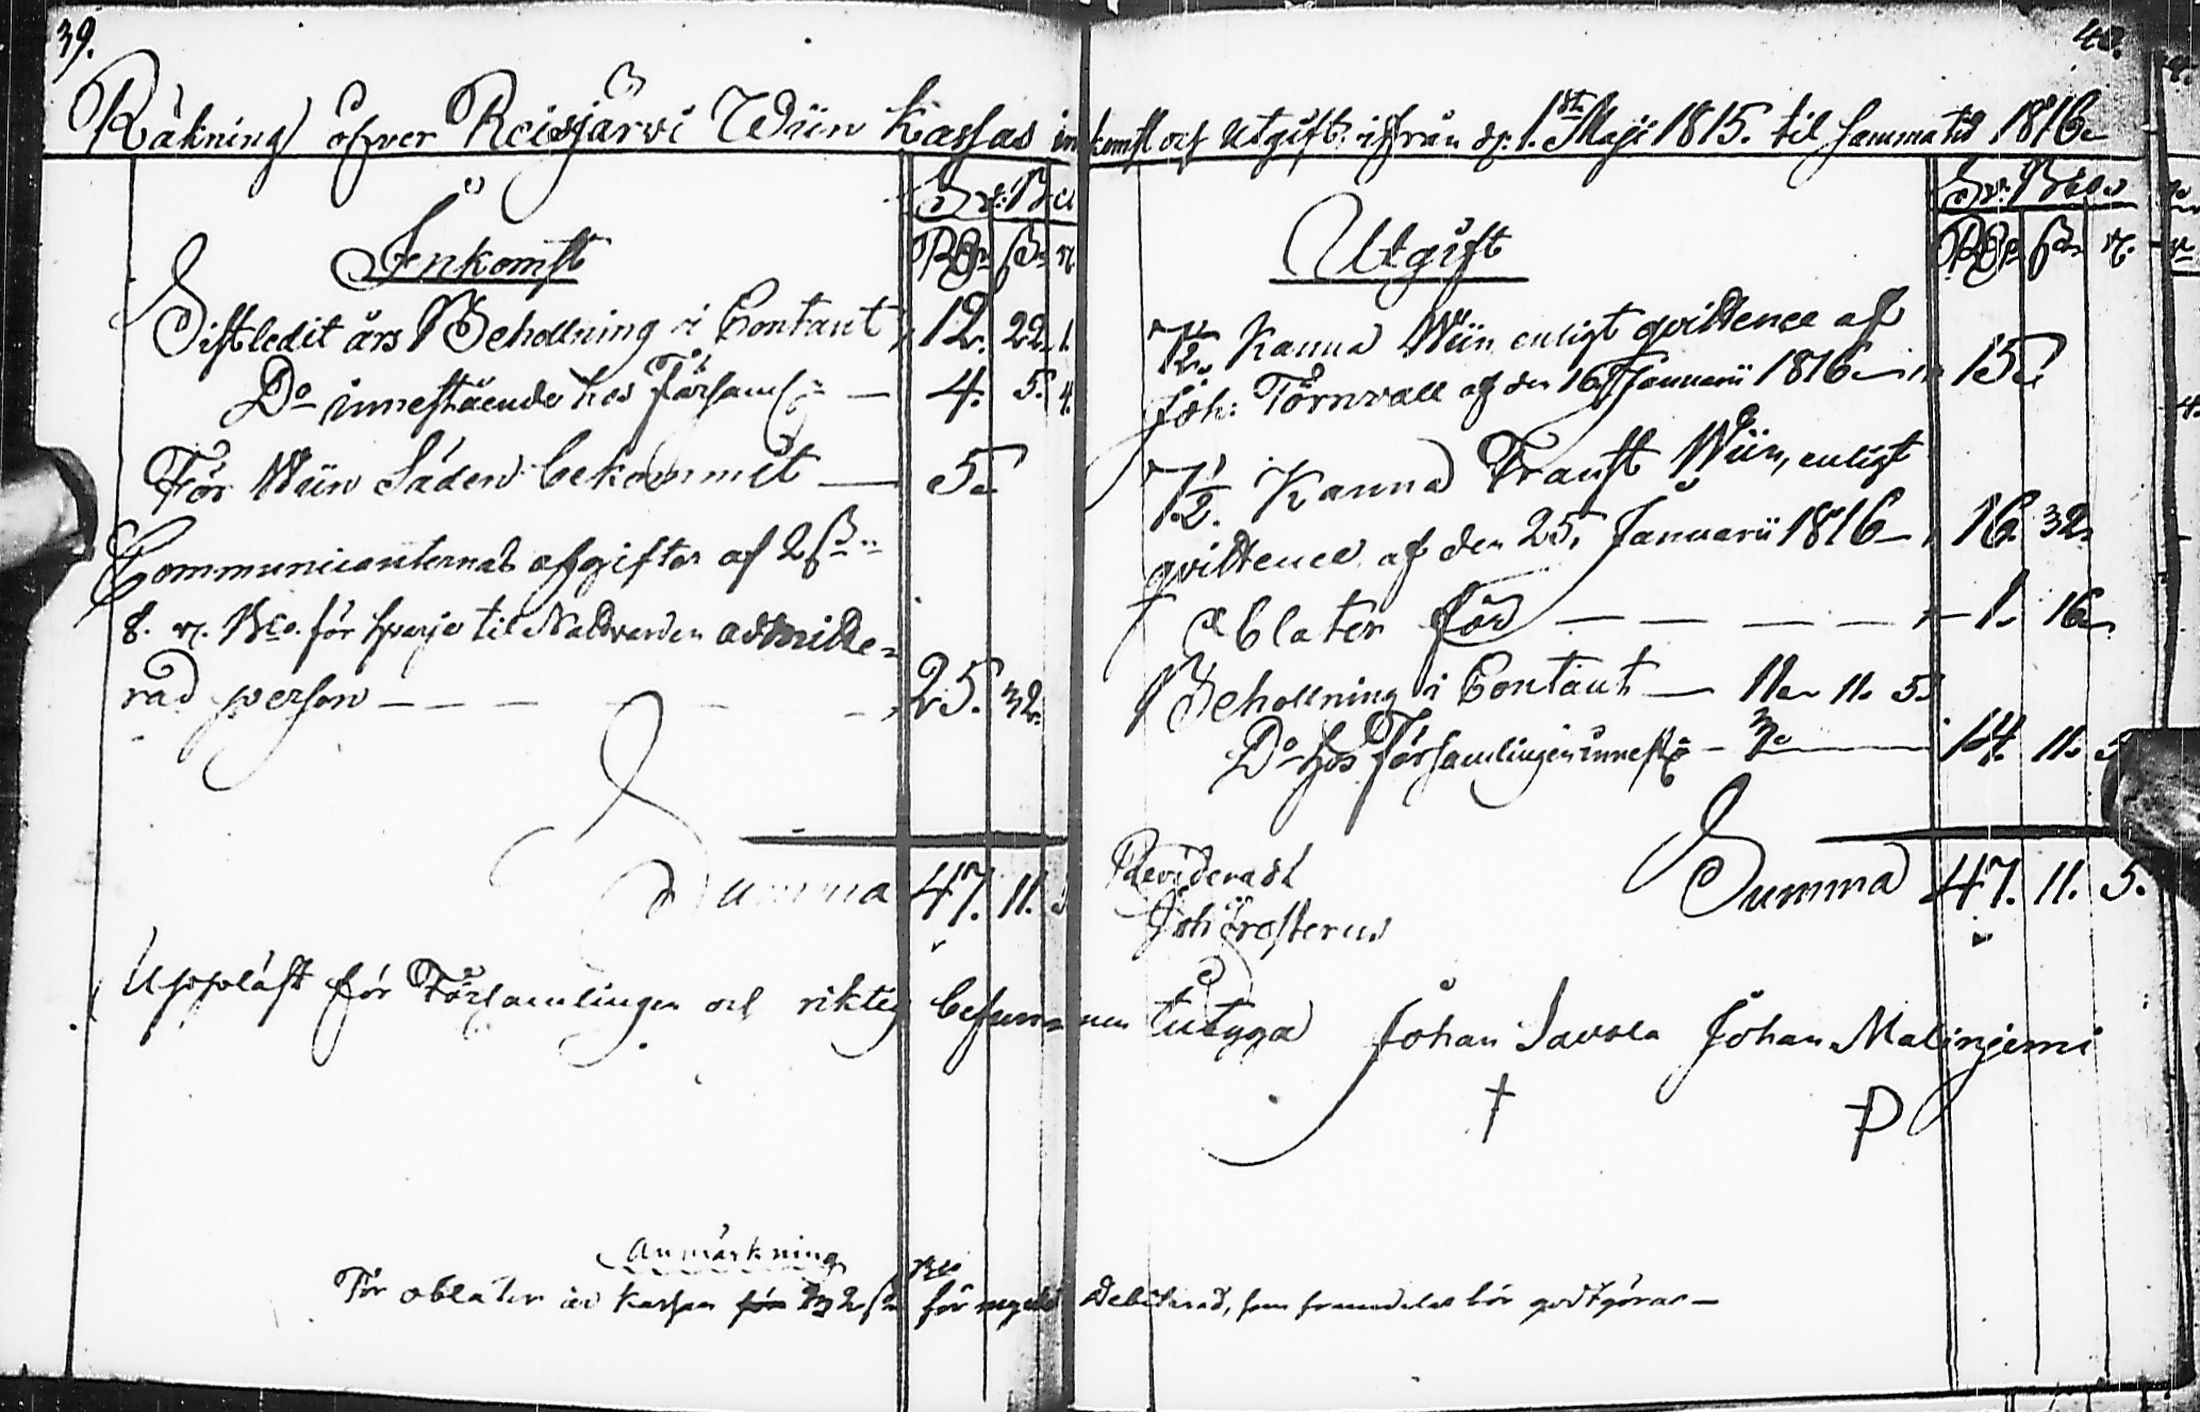 39.
40.
Räkning öfver Reisjärvi Wiin Kassas inkomst och Utgift ifrån d. 1.st Maji 1815. til samma tid 1816.
Inkomst
Sv: Bco
Rdr ß r.
Sistledit års Behollning i Contant 12. 22. 1.
Do innestående hos Församl: — 4. 5. 4.
För Wiin Säden bekommit — 5.
Communicanternas afgifter af 2 ß
8. r. Bco. för hvarje til Nattvarden admitte=
rad person — — — 25. 32.
Summa 47. 11. 5
Uppläst för Församlingen och riktig befunnen
Utgift
Sv: Bco
Rdr ß r.
7 1/2. Kanna Wiin enligt qvittence af
Joh: Törnvall af den 16 Januarii 1816 — 15.
7 1/2. Kanna Franst Wiin, enligt
qvittence af den 25. Januarii 1816 — 16. 32.
Oblater för — — — — — 1. 16.
Behollning i Contant — 11. 11. 5.
Do hos Församlingen innest: — 3. — 14. 11. 5
Summa 47. 11. 5.
Revideradt
Joh
tütyga Johan Savola Johan Malinjemi
Anmärkning
För oblater är Kassan 2 ß Bco för mycket Debiterad, som framdeles bör godtgöras —